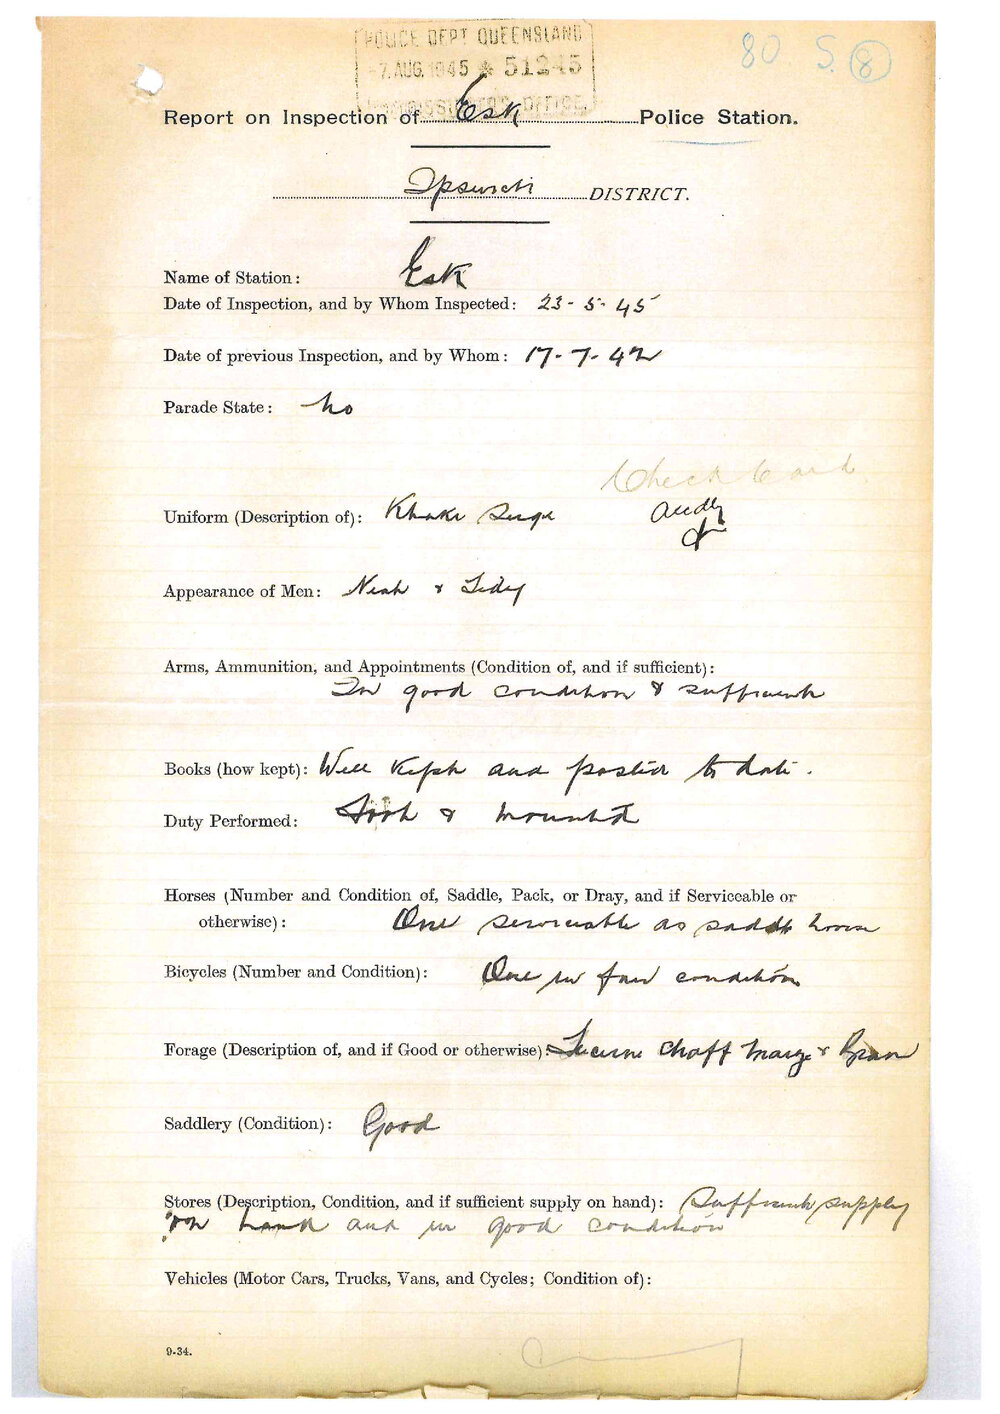 POLICE DEPT QUEENSLAND
-7. AUG. 1945 ★ 51245
COMMISSIONER'S OFFICE
80 S. 8
Report on Inspection of Esk Police Station.
Ipswich DISTRICT.
Name of Station: Esk
Date of Inspection, and by Whom Inspected: 23-5-45
Date of previous Inspection, and by Whom: 17-7-42
Parade State: No
Check Card
Uniform (Description of): Khaki Serge
Appearance of Men: Neat & Tidy
Arms, Ammunition, and Appointments (Condition of, and if sufficient):
In good condition & sufficient
Books (how kept): Well kept and posted to date.
Duty Performed: Foot & Mounted
Horses (Number and Condition of, Saddle, Pack, or Dray, and if Serviceable or
otherwise): One serviceable as saddle horse
Bicycles (Number and Condition): One in fair condition
Forage (Description of, and if Good or otherwise): Lucerne Chaff Maize & Bran
Saddlery (Condition): Good
Stores (Description, Condition, and if sufficient supply on hand): Sufficient supply
on hand and in good condition
Vehicles (Motor Cars, Trucks, Vans, and Cycles; Condition of):
9-34.